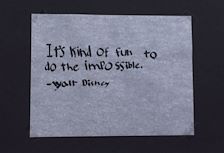 It's kind of fun to
do the impossible.
-Walt Disney